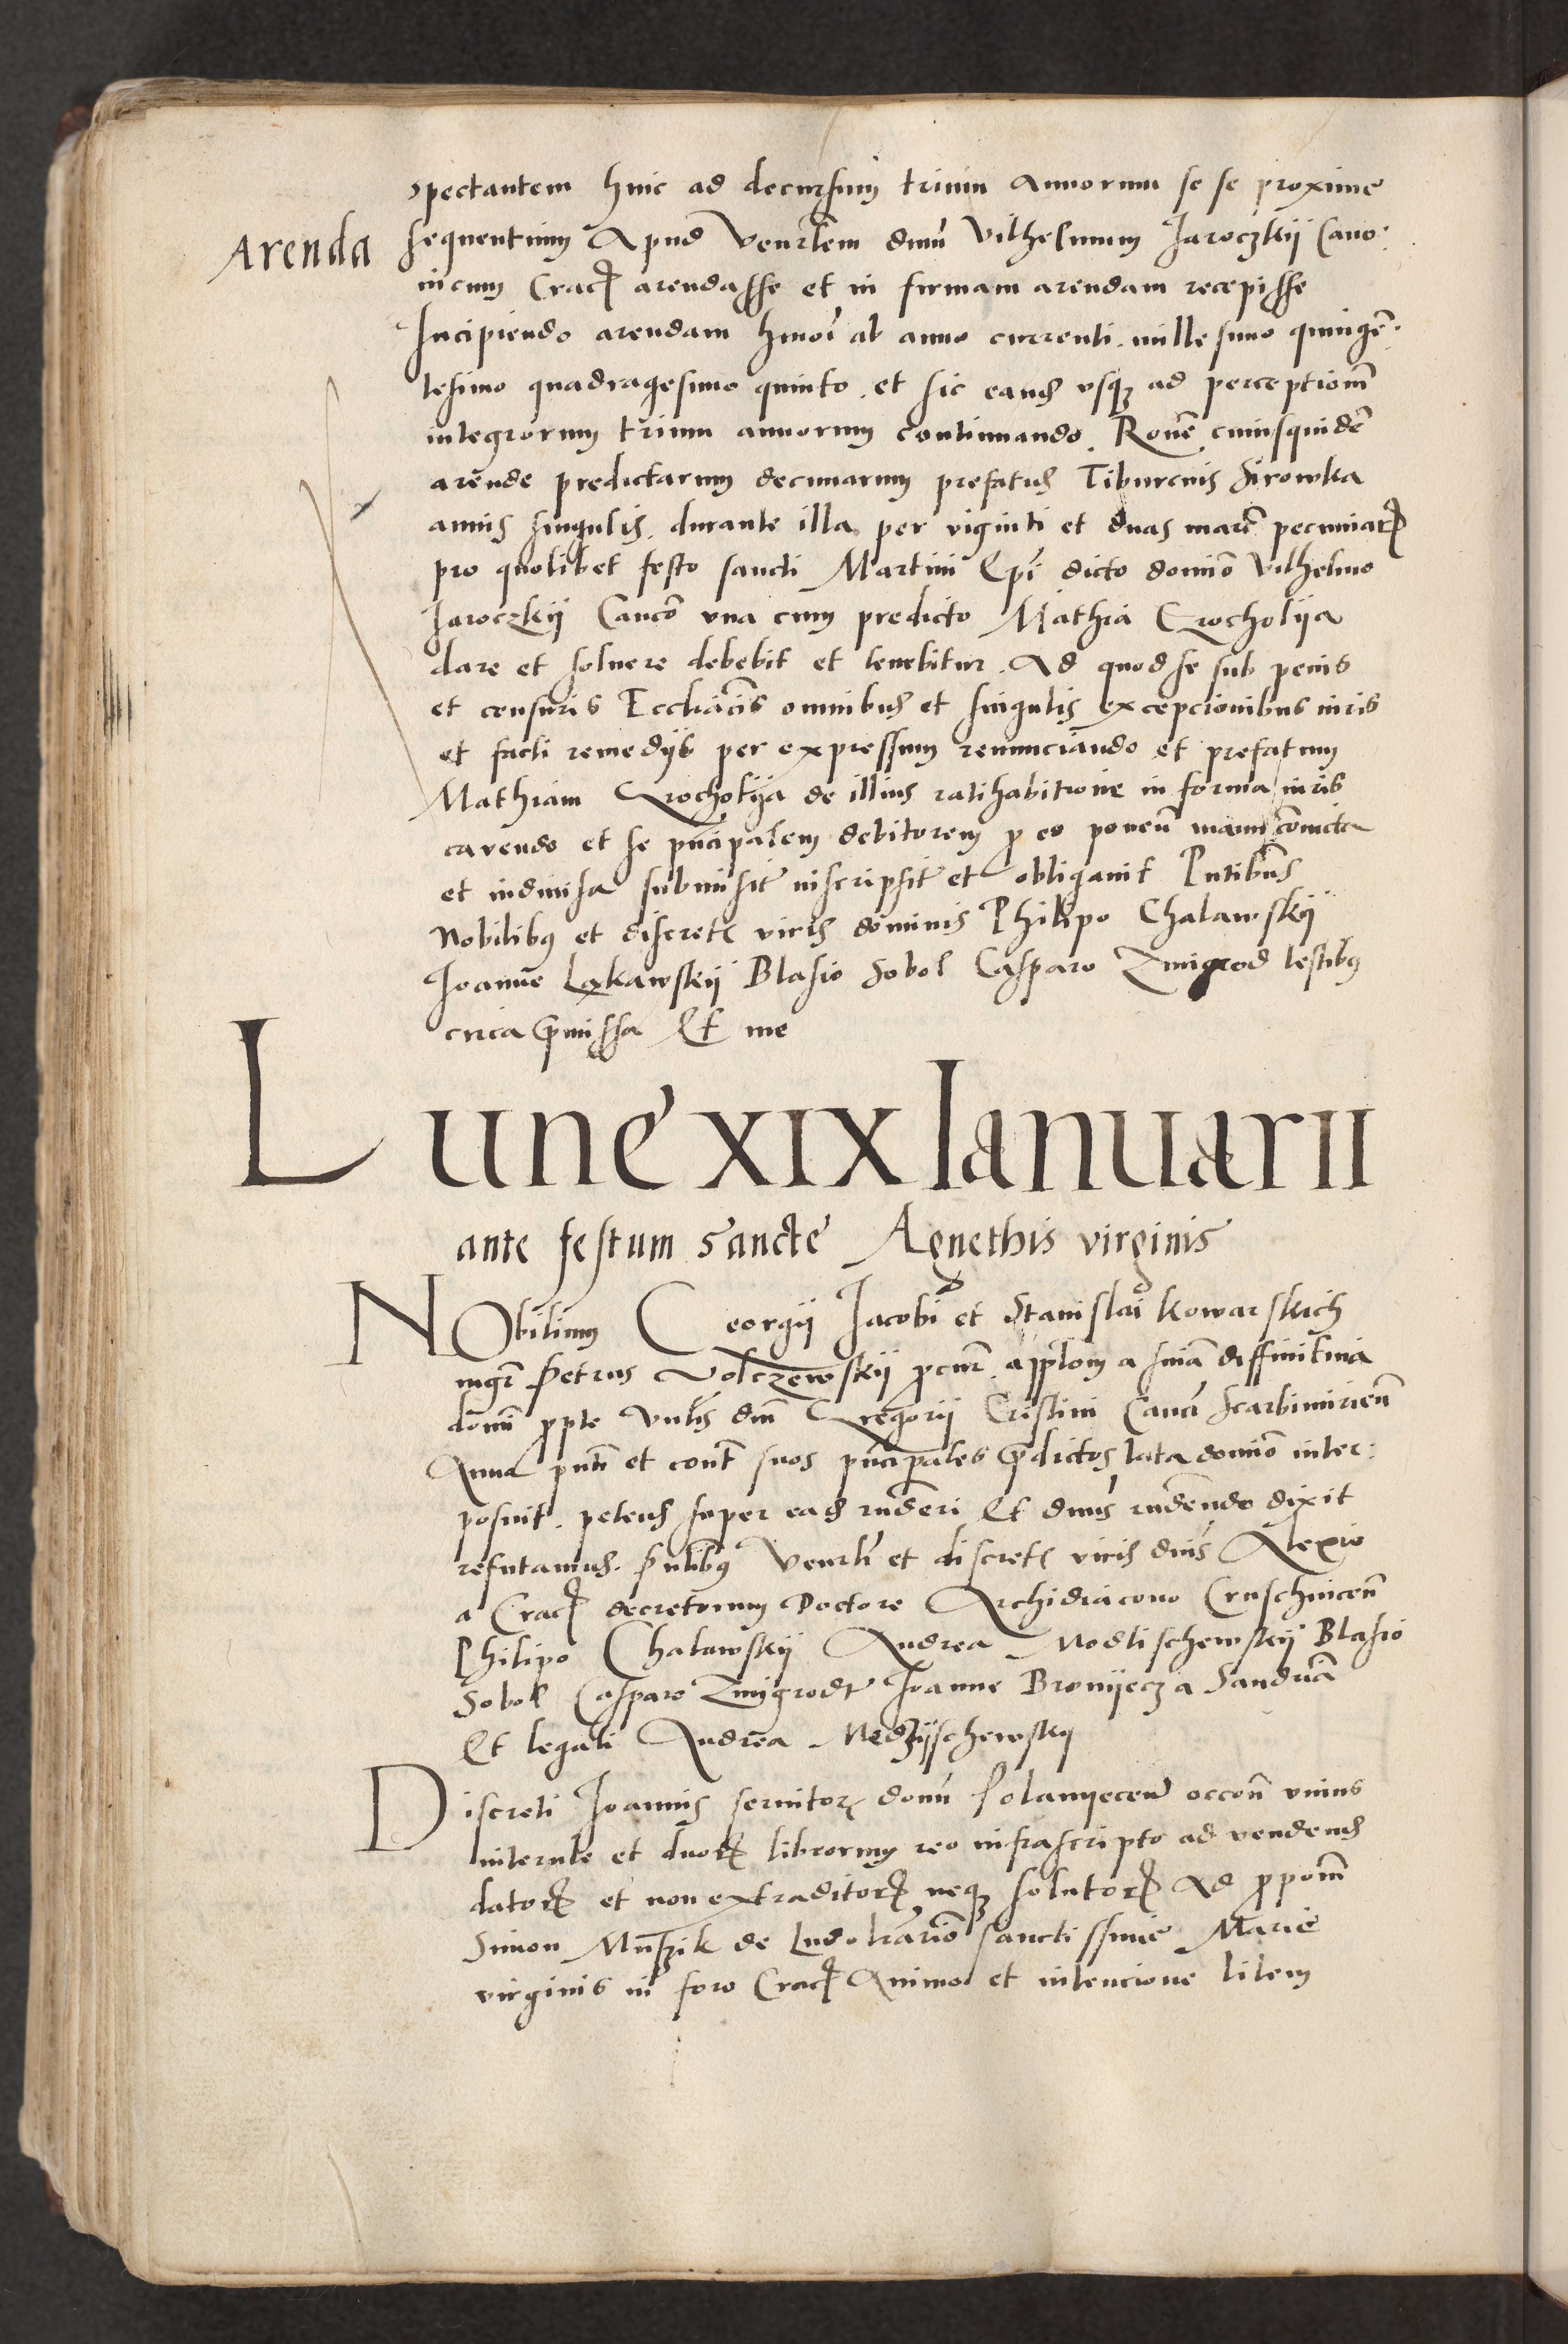 spectantem hinc ad decursum trium Annorum se se proxime
Arenda
sequentium Apud Venerlem dnum Vilhelmum Jaroczkij Cano:
nicum Crac arendasse et in firmam arendam recepisse
Incipiendo arendam hmoi ab anno currenti. millesimo quingen:
tesimo quadragesimo quinto. et sic eand usq ad perceptionem
integrorum trium annorum continuando. Rone cuiusquidem
arende predictarum decimarum prefatus Tiburcius Sirowka
annis singulis. durante illa per viginti et duas marc pecuniar
pro quolibet festo sancti Martini Epi dicto domino Vilhelmo
Jaroczkij Canco vna cum predicto Mathia Grocholija
dare et soluere debebit et tenebitur. Ad quod se sub penis
et censuris Eccliacis omnibus et singulis excepcionibus iuris
et facti remedijs per expressum renunciando et prefatum
Mathiam Grocholija de illius ratihabitione in forma iuris
cavendo et se pncipalem debitorem p eo ponen manu coniucta
et indiuisa submisit inscripsit et obligauit Pntibus
Nobilibus et discret viris dominis Philipo Chalawskij
Joanne Ląkawskij Blasio Sobol Casparo Zmigrod testibus
circa pmissa Et me
Lune XIX Ianuarii
ante festum sancte Agnethis virginis
NObilium Georgij Jacobi et Stanislai Kowarskich
mgr Petrus Volczewskij pcur. applom a snia diffinitiua
domi ppte Vnlis dni Gregorij Cristini Canci Scarbimirien
Anna pntu et cont suos pncipales pdictos lata domino inter:
posuit. petens super ead runderi Et dnus rundendo dixit
refutamus. Pntibus Venerli et discret viris dnis Alexio
a Crac decretorum Doctore Archidiacono Cruschuicen
Philipo Chalawskij Andrea Modlischewskij Blasio
Sobol Casparo Zmigrodt Joanne Bronijecz a Sandua
Et legali Andrea Medzijschewskij
Discreti Joannis seruitor domi Polanijecen occone vnius
interule et duor librorum reo infrascripto ad vendend
dator et non extraditor neq solutor Ad pponem
Simon Muszik de Ludo sanctissime Marie
virginis in foro Crac Animo et intencione litem